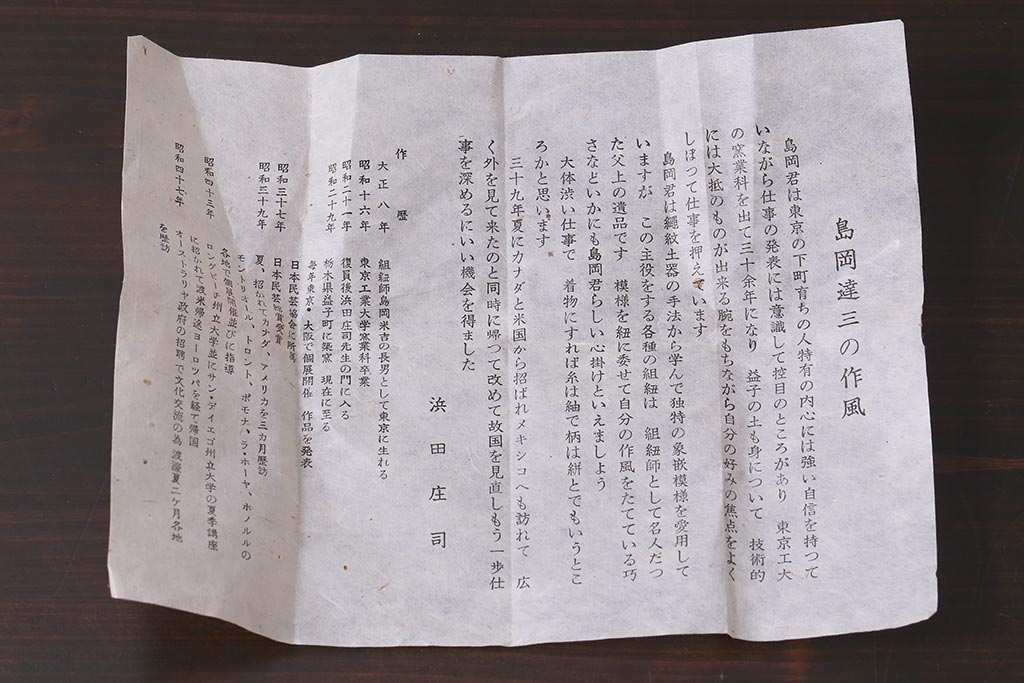 島岡達三の作風
島岡君は東京の下町育ちの人特有の内心には強い自信を持つて
いながら仕事の発表には意識して控目のところがあり　東京工大
の窯業科を出て三十余年になり　益子の土も身について　技術的
には大抵のものが出来る腕をもちながら自分の好みの焦点をよく
しぼつて仕事を押えています
島岡君は縄紋土器の手法から学んで独特の象嵌模様を愛用して
いますが　この主役をする各種の組紐は　組紐師として名人だつ
た父上の遺品です　模様を紐に委せて自分の作風をたてている巧
さなどいかにも島岡君らしい心掛けといえましよう
大体渋い仕事で　着物にすれば糸は紬で柄は絣とでもいうとこ
ろかと思います
三十九年夏にカナダと米国から招ばれメキシコへも訪れて　広
く外を見て来たのと同時に帰つて改めて故国を見直しもう一歩仕
事を深めるにいい機会を得ました
浜田庄司
作歴
大正八年　組紐師島岡米吉の長男として東京に生れる
昭和十六年　東京工業大学窯業科卒業
昭和二十一年　復員後浜田庄司先生の門に入る
昭和二十九年　栃木県益子町に築窯　現在に至る
毎年東京・大阪で個展開催　作品を発表
日本民芸協会に所属
昭和三十七年　日本民芸館賞受賞
昭和三十九年　夏、招かれてカナダ、アメリカを三カ月歴訪
モントリオール、トロント、ポモナ、ラ・ホーヤ、ホノルルの
各地で個展開催並びに指導
昭和四十三年　ロングビーチ州立大学並にサン・デイエゴ州立大学の夏季講座
に招かれて渡米帰途ヨーロツパを経て帰国
昭和四十七年　オーストラリヤ政府の招聘で文化交流の為 渡濠夏二ケ月各地
を歴訪